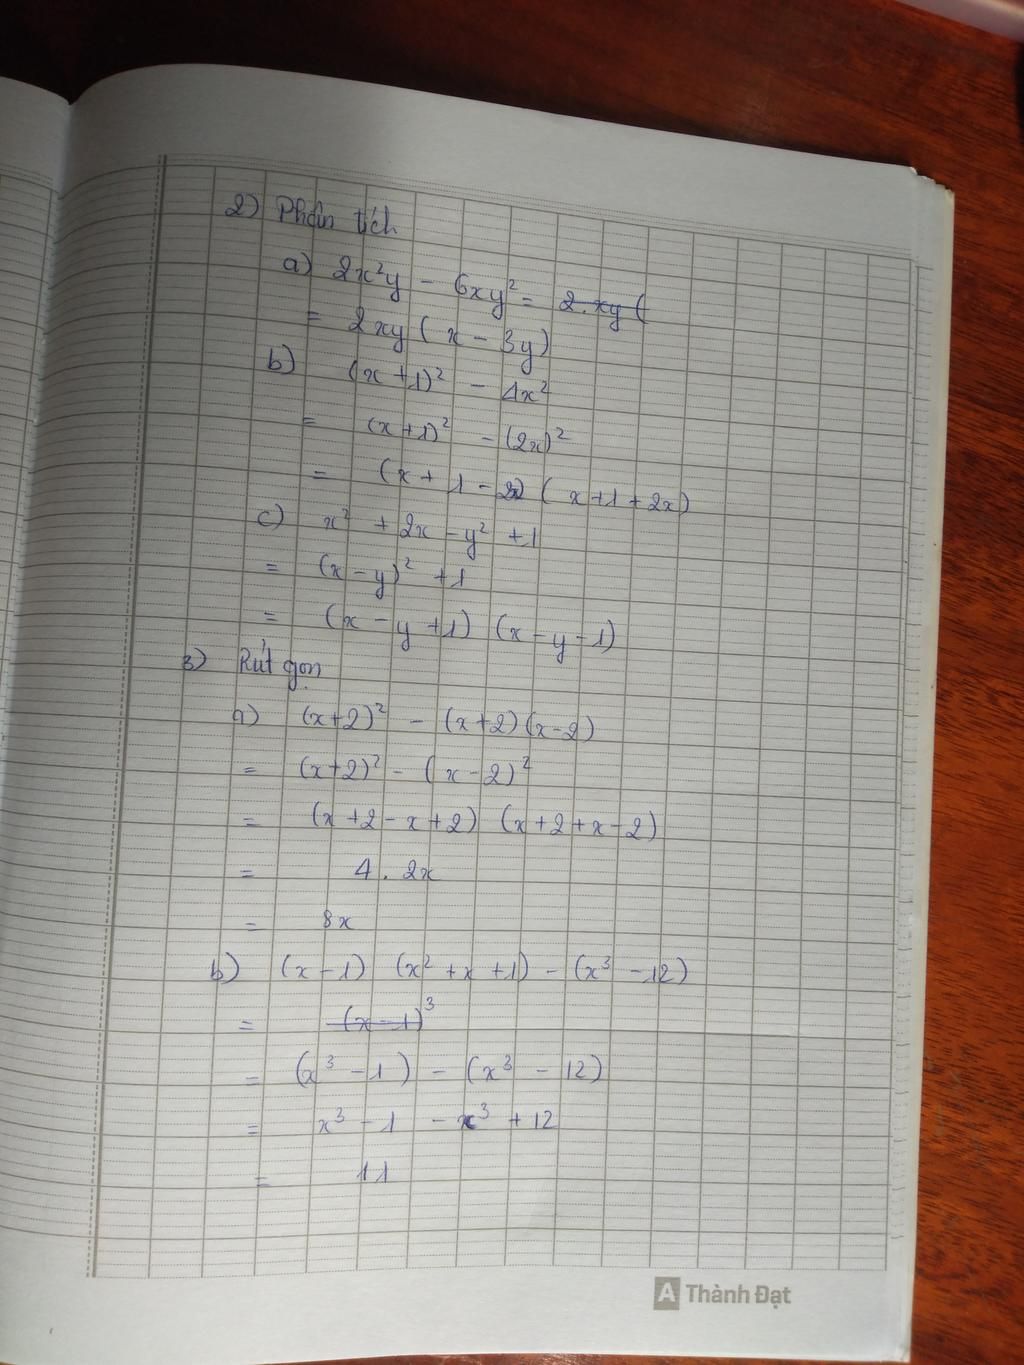 2) Phân tích
a) 2x²y - 6xy² = 2.xy(
= 2xy(x - 3y)
b) (x+1)² - 4x²
= (x+1)² - (2x)²
= (x + 1 - 2x) (x+1+2x)
c) x² + 2x - y² + 1
= (x - y)² + 1
= (x - y + 1) (x - y - 1)
3) Rút gọn
a) (x+2)² - (x+2)(x-2)
= (x+2)² - (x-2)²
= (x+2-x+2) (x+2+x-2)
= 4 . 2x
= 8x
b) (x-1) (x² + x + 1) - (x³ - 12)
= (x-1)³
= (x³ - 1) - (x³ - 12)
= x³ - 1 - x³ + 12
= 11
A Thành Đạt